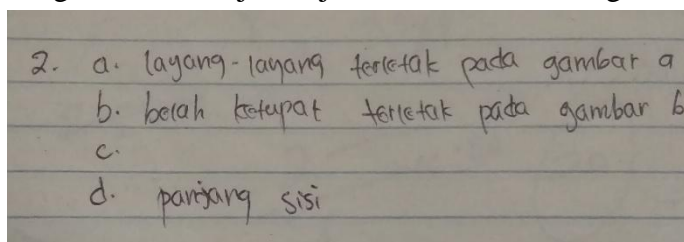 2. a. layang-layang terletak pada gambar a
b. belah ketupat terletak pada gambar b
c.
d. panjang sisi